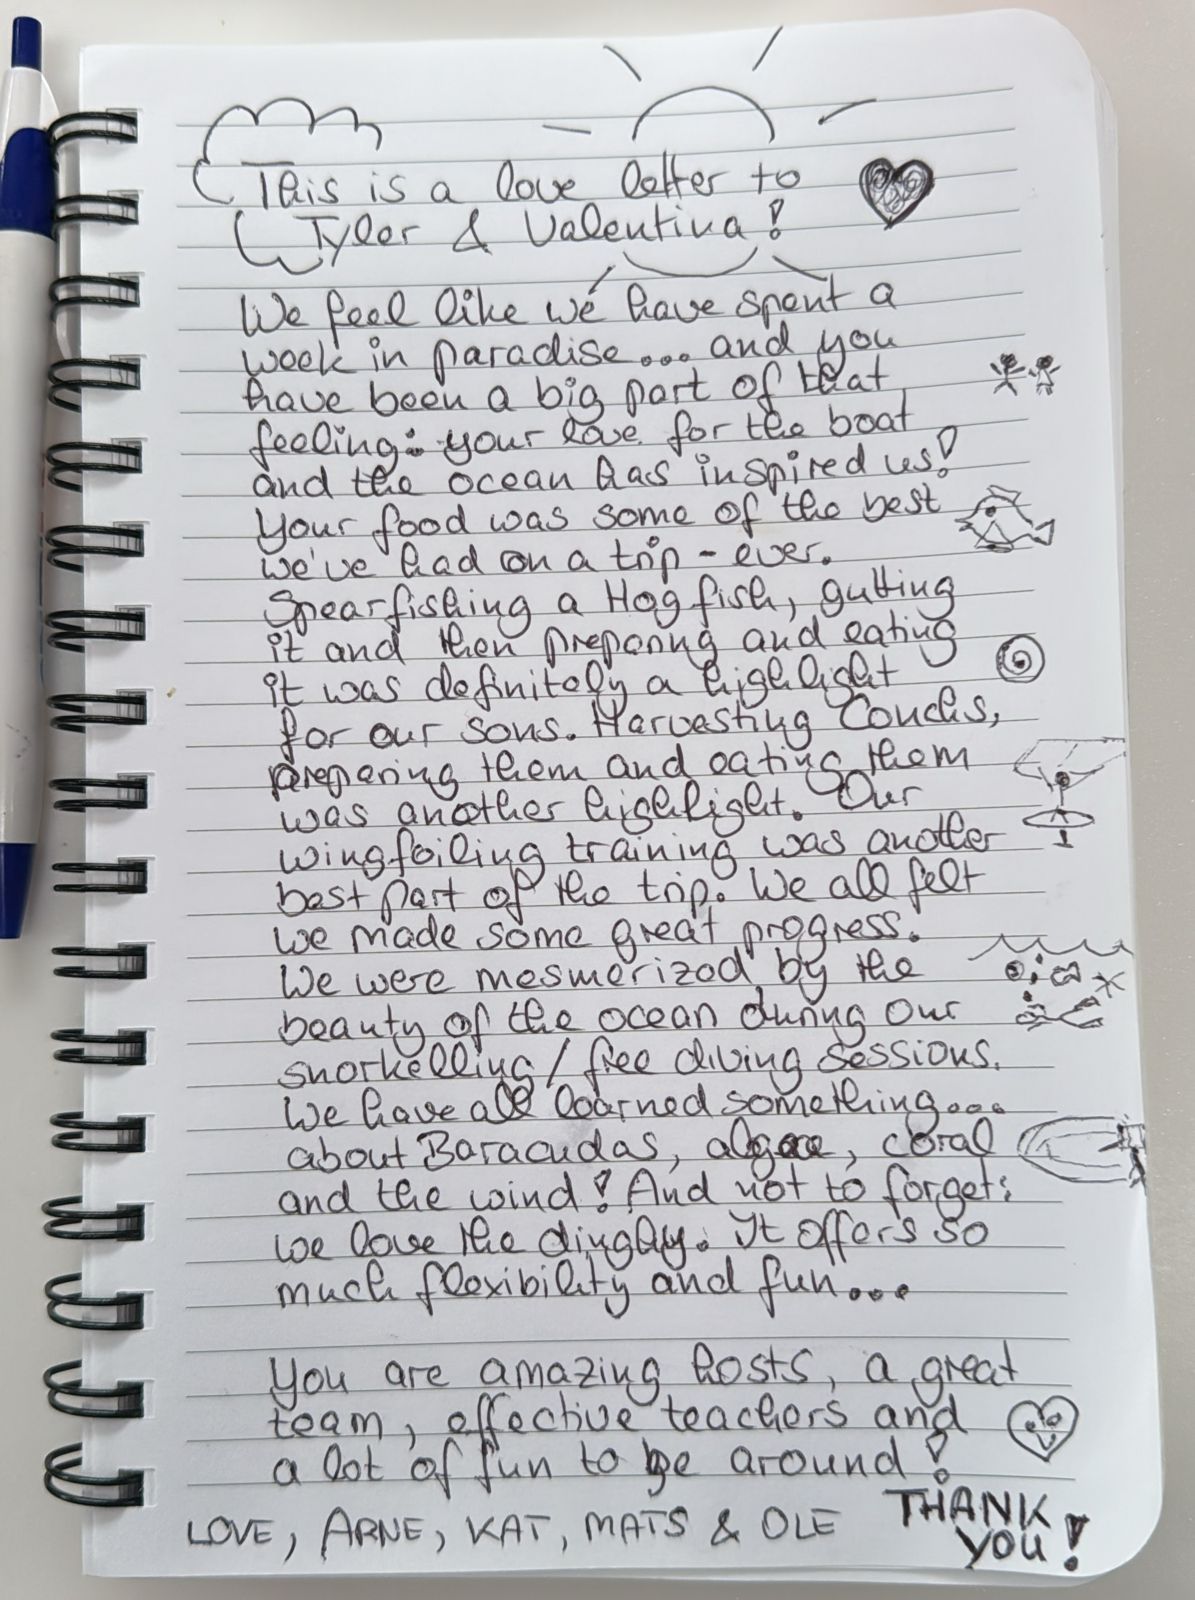 This is a love letter to
Tyler & Valentina!
We feel like we have spent a
week in paradise... and you
have been a big part of that
feeling: your love for the boat
and the ocean has inspired us!
Your food was some of the best
we've had on a trip - ever.
Spearfishing a Hogfish, gutting
it and then preparing and eating
it was definitely a highlight
for our sons. Harvesting Conchs,
preparing them and eating them
was another highlight. Our
wingfoiling training was another
best part of the trip. We all felt
we made some great progress.
We were mesmerized by the
beauty of the ocean during our
snorkelling / free diving sessions.
We have all learned something...
about Baracudas, algae, coral
and the wind! And not to forget:
we love the dinghy. It offers so
much flexibility and fun...
You are amazing hosts, a great
team, effective teachers and
a lot of fun to be around!
LOVE, ARNE, KAT, MATS & OLE
THANK
YOU!